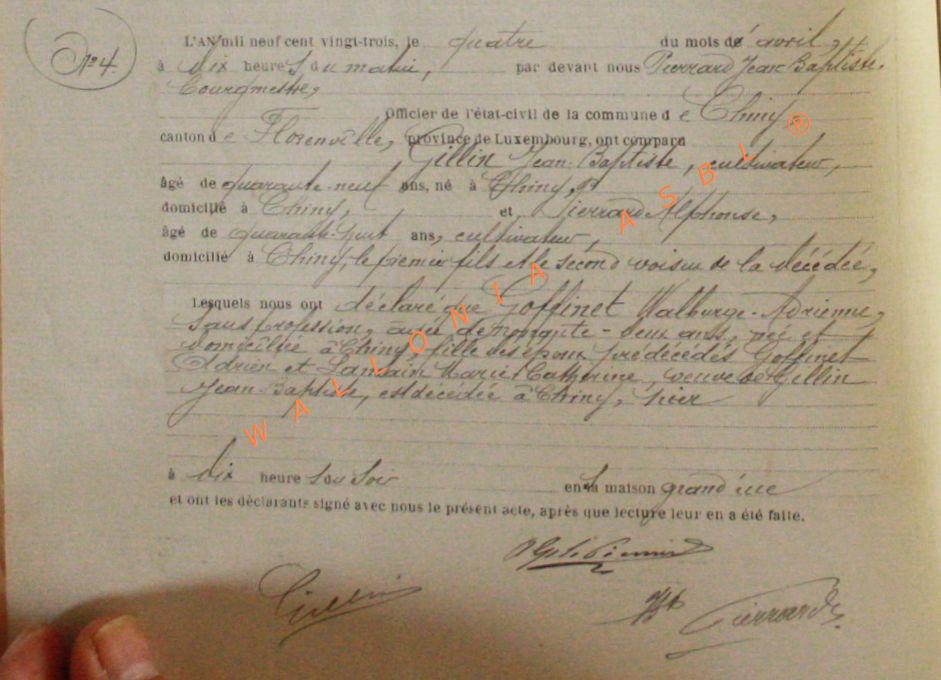 N° 4.
L'AN mil neuf cent vingt-trois, le quatre du mois de avril,
à dix heures du matin, par devant nous Pierrard Jean Baptiste,
Bourgmestre,
Officier de l'état-civil de la commune de Chiny
canton de Florenville, province de Luxembourg, ont comparu
Gillin Jean-Baptiste, cultivateur,
âgé de quarante-neuf ans, né à Chiny, et
domicilié à Chiny, et Pierrard Alphonse,
âgé de quarante-huit ans, cultivateur,
domicilié à Chiny, le premier fils et le second voisin de la décédée,
Lesquels nous ont déclaré que Goffinet Walburge-Adrienne,
sans profession, âgée de deux ans, née et
domiciliée à Chiny, fille des époux prédécédés Goffinet
Adrien et Marie Catherine, veuve de Gillin
Jean-Baptiste, est décédée à Chiny, hier
à dix heures du soir en sa maison grand'rue
et ont les déclarants signé avec nous le présent acte, après que lecture leur en a été faite.
Gillin
Jb Pierrard
WALLONIA ASBL ®